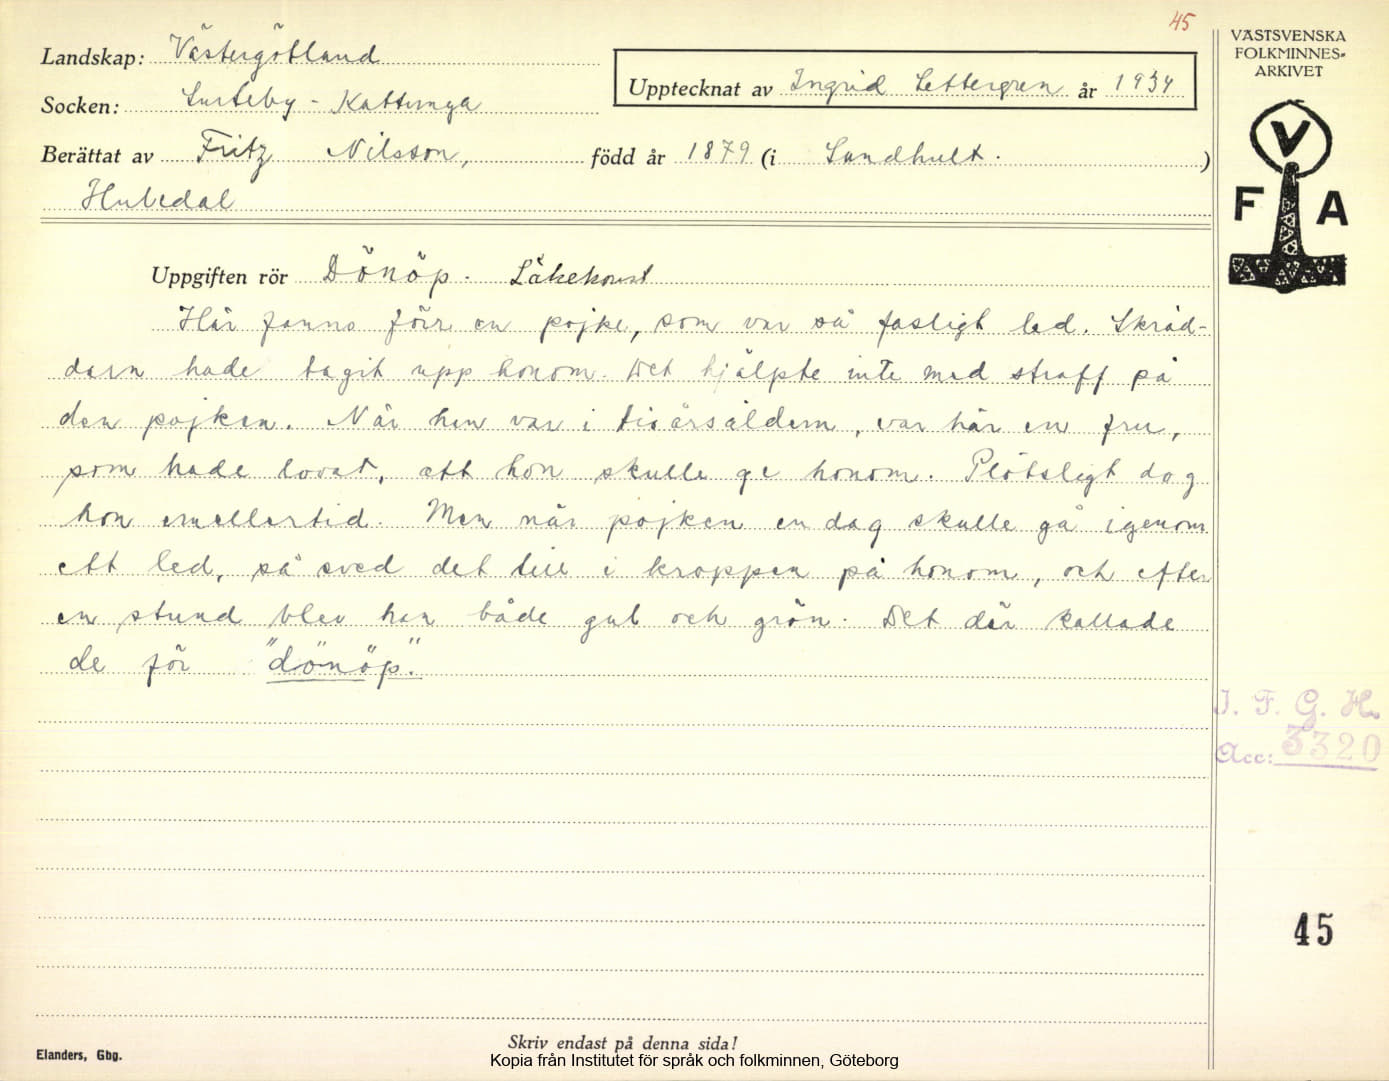 45
Landskap: Västergötland
Socken: Surteby - Kattunga
Upptecknat av Ingrid Settergren år 1934
Berättat av Fritz Nilsson, född år 1879 (i Sandhult. )
Hubedal
VÄSTSVENSKA
FOLKMINNES-
ARKIVET
V
F A
Uppgiften rör Dönöp. Läkekonst
Här fanns förr en pojke, som var så fasligt led. Skräd-
darn hade tagit upp honom. Det hjälpte inte med straff på
den pojken. När han var i tioårsåldern, var här en fru,
som hade lovat, att hon skulle ge honom. Plötsligt dog
hon emellertid. Men när pojken en dag skulle gå igenom
ett led, så sved det till i kroppen på honom, och efter
en stund blev han både gul och grön. Det där kallade
de för "dönöp".
I. F. G. H.
Acc: 3320
45
Skriv endast på denna sida!
Elanders, Gbg.
Kopia från Institutet för språk och folkminnen, Göteborg